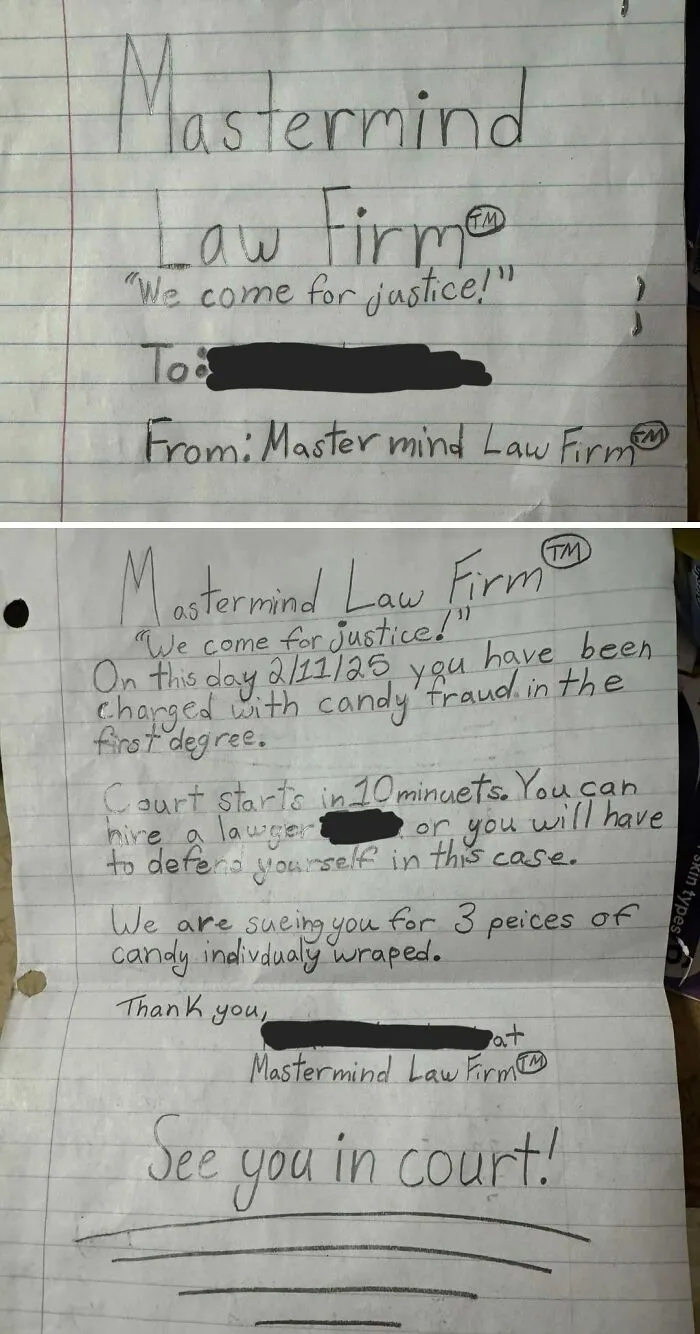 Mastermind
Law Firm TM
"We come for justice!"
To:
From: Mastermind Law Firm TM
Mastermind Law Firm TM
"We come for justice!"
On this day 2/11/25 you have been
charged with candy fraud in the
first degree.
Court starts in 10 minuets. You can
hire a lawger or you will have
to defend yourself in this case.
We are sueing you for 3 peices of
candy indivdualy wraped.
Thank you,
at
Mastermind Law Firm TM
See you in court!
skin types